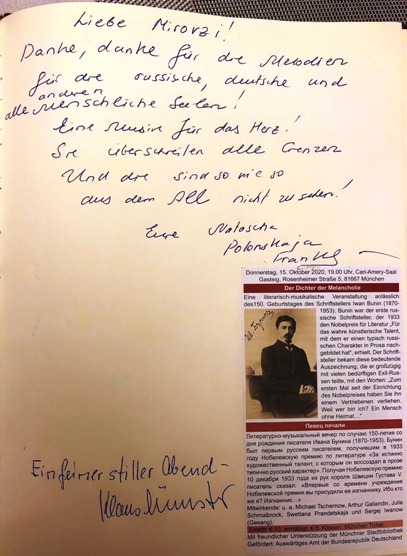 Liebe Mirorzi!
Danke, danke für die Melodien
für die russische, deutsche und
alle anderen menschliche Seelen!
Eine Musik für das Herz!
Sie überschreiten alle Grenzen
Und die sind so wie so
aus dem All nicht zu sehen!
Eure Natascha
Polonskaja
Donnerstag, 15. Oktober 2020, 19.00 Uhr, Carl-Amery-Saal
Gasteig, Rosenheimer Straße 5, 81667 München
Der Dichter der Melancholie
Eine literarisch-musikalische Veranstaltung anlässlich
des150. Geburtstages des Schriftstellers Iwan Bunin (1870-
1953). Bunin war der erste rus-
sische Schriftsteller, der 1933
den Nobelpreis für Literatur „Für
das wahre künstlerische Talent,
mit dem er einen typisch russi-
schen Charakter in Prosa nach-
gebildet hat“, erhielt. Der Schrift-
steller bekam diese bedeutende
Auszeichnung, die er großzügig
mit vielen bedürftigen Exil-Rus-
sen teilte, mit den Worten: „Zum
ersten Mal seit der Einrichtung
des Nobelpreises haben Sie ihn
einem Vertriebenen verliehen.
Weil wer bin ich? Ein Mensch
ohne Heimat“.
Певец печали
Литературно-музыкальный вечер по случаю 150-летия со
дня рождения писателя Ивана Бунина (1870-1953). Бунин
был первым русским писателем, получившим в 1933
году Нобелевскую премию по литературе «За истинно
художественный талант, с которым он воссоздал в прозе
типично русский характер». Получая Нобелевскую премию
10 декабря 1933 года из рук короля Швеции Густава V,
писатель сказал: «Впервые со времени учреждения
Нобелевской премии вы присудили ее изгнаннику. Ибо кто
же я? Изгнанник…»
Mitwirkende: u. a. Michael Tschernow, Arthur Galiandin, Julia
Schmalbrock, Swetlana Prandetskaja und Sergej Iwanow
(Gesang).
Eintritt: € 10, ermäßigt € 8. Kassen: München-Ticket
Mit freundlicher Unterstützung der Münchner Stadtbibliothek
Gefördert: Auswärtiges Amt der Bundesrepublik Deutschland
Ein feiner stiller Abend -
Klaus Münster